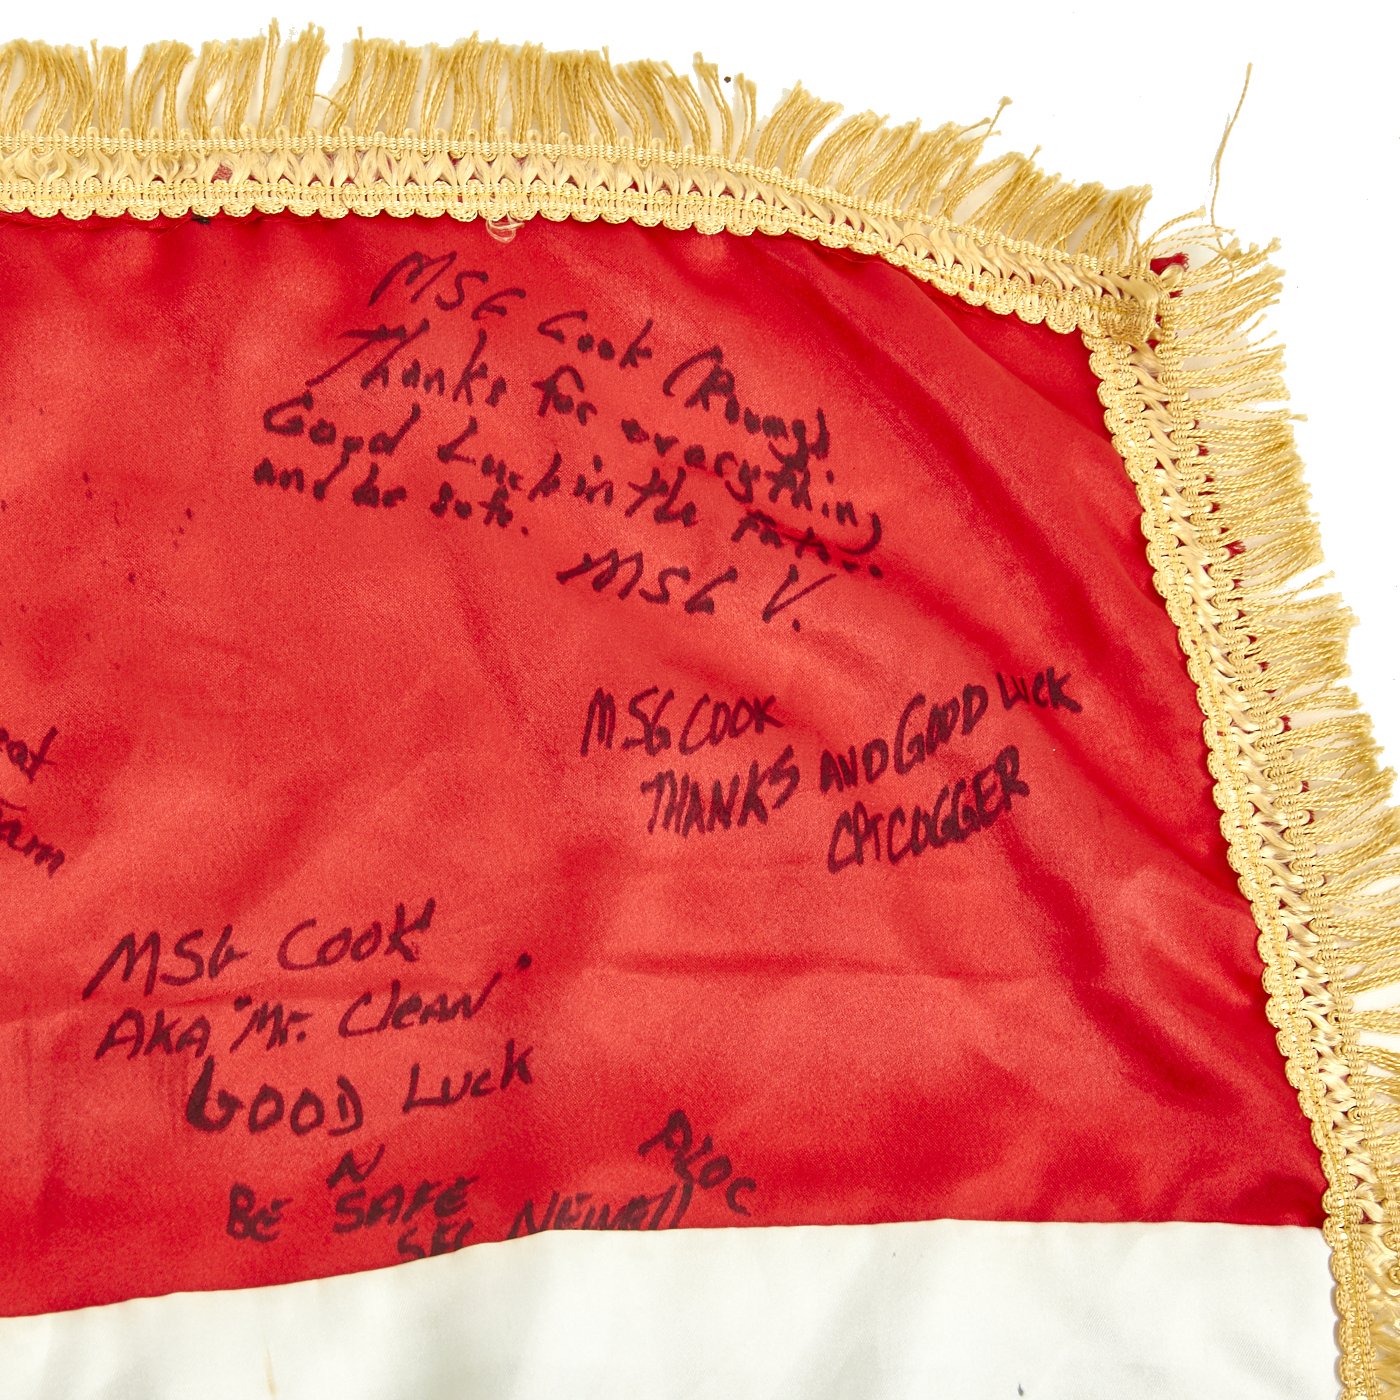 MSG Cook
Thanks for everything
Good Luck in the
and be safe.
MSG V.
MSG COOK
THANKS AND GOOD LUCK
CPT COGGER
MSG COOK
AKA "Mr. Clean"
GOOD Luck
N
BE SAFE
SFC NEWELL